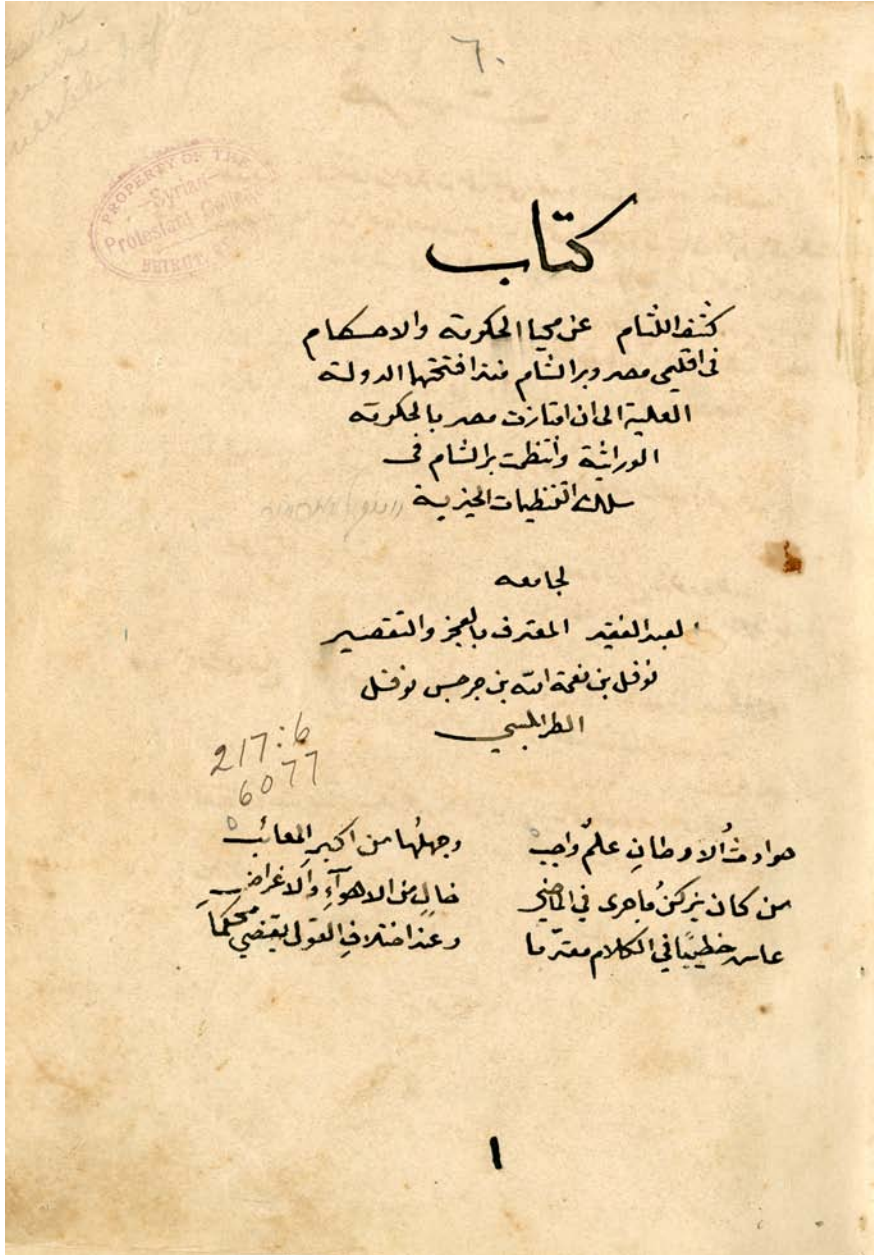 ٦٠
PROPERTY OF THE
Syrian
Protestant College
BEIRUT
كتاب
كشف اللثام عن محيا الحكومة والاحكام
في اقليمي مصر وبر الشام منذ افتتحها الدولة
العلية الى ان امتازت مصر بالحكومة
الوراثية وانتظمت بر الشام في
سلك التنظيمات الخيرية
لجامعه
لعبد الفقير المعترف بالعجز والتقصير
نوفل بن نعمة الله بن جرجس نوفل
الطرابلسي
217:6
6077
حوادثُ الاوطانِ علمٌ واجب وجهلُها من اكبرِ المعائب
من كان يزكنُ ماجرى في الماضي خالٍ من الاهوآءِ والاغراضِ
خطيبًا في الكلام مقدّما وعند اختلافِ القولِ يقضي محكما
١